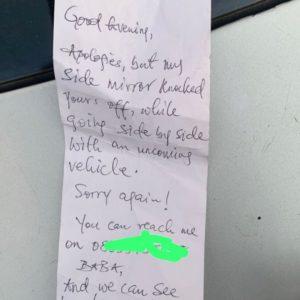 Good Evening,
Apologies, but my
side mirror knocked
yours off, while
going side by side
with an uncoming
vehicle.
Sorry again!
You can reach me
on
BABA,
And we can see